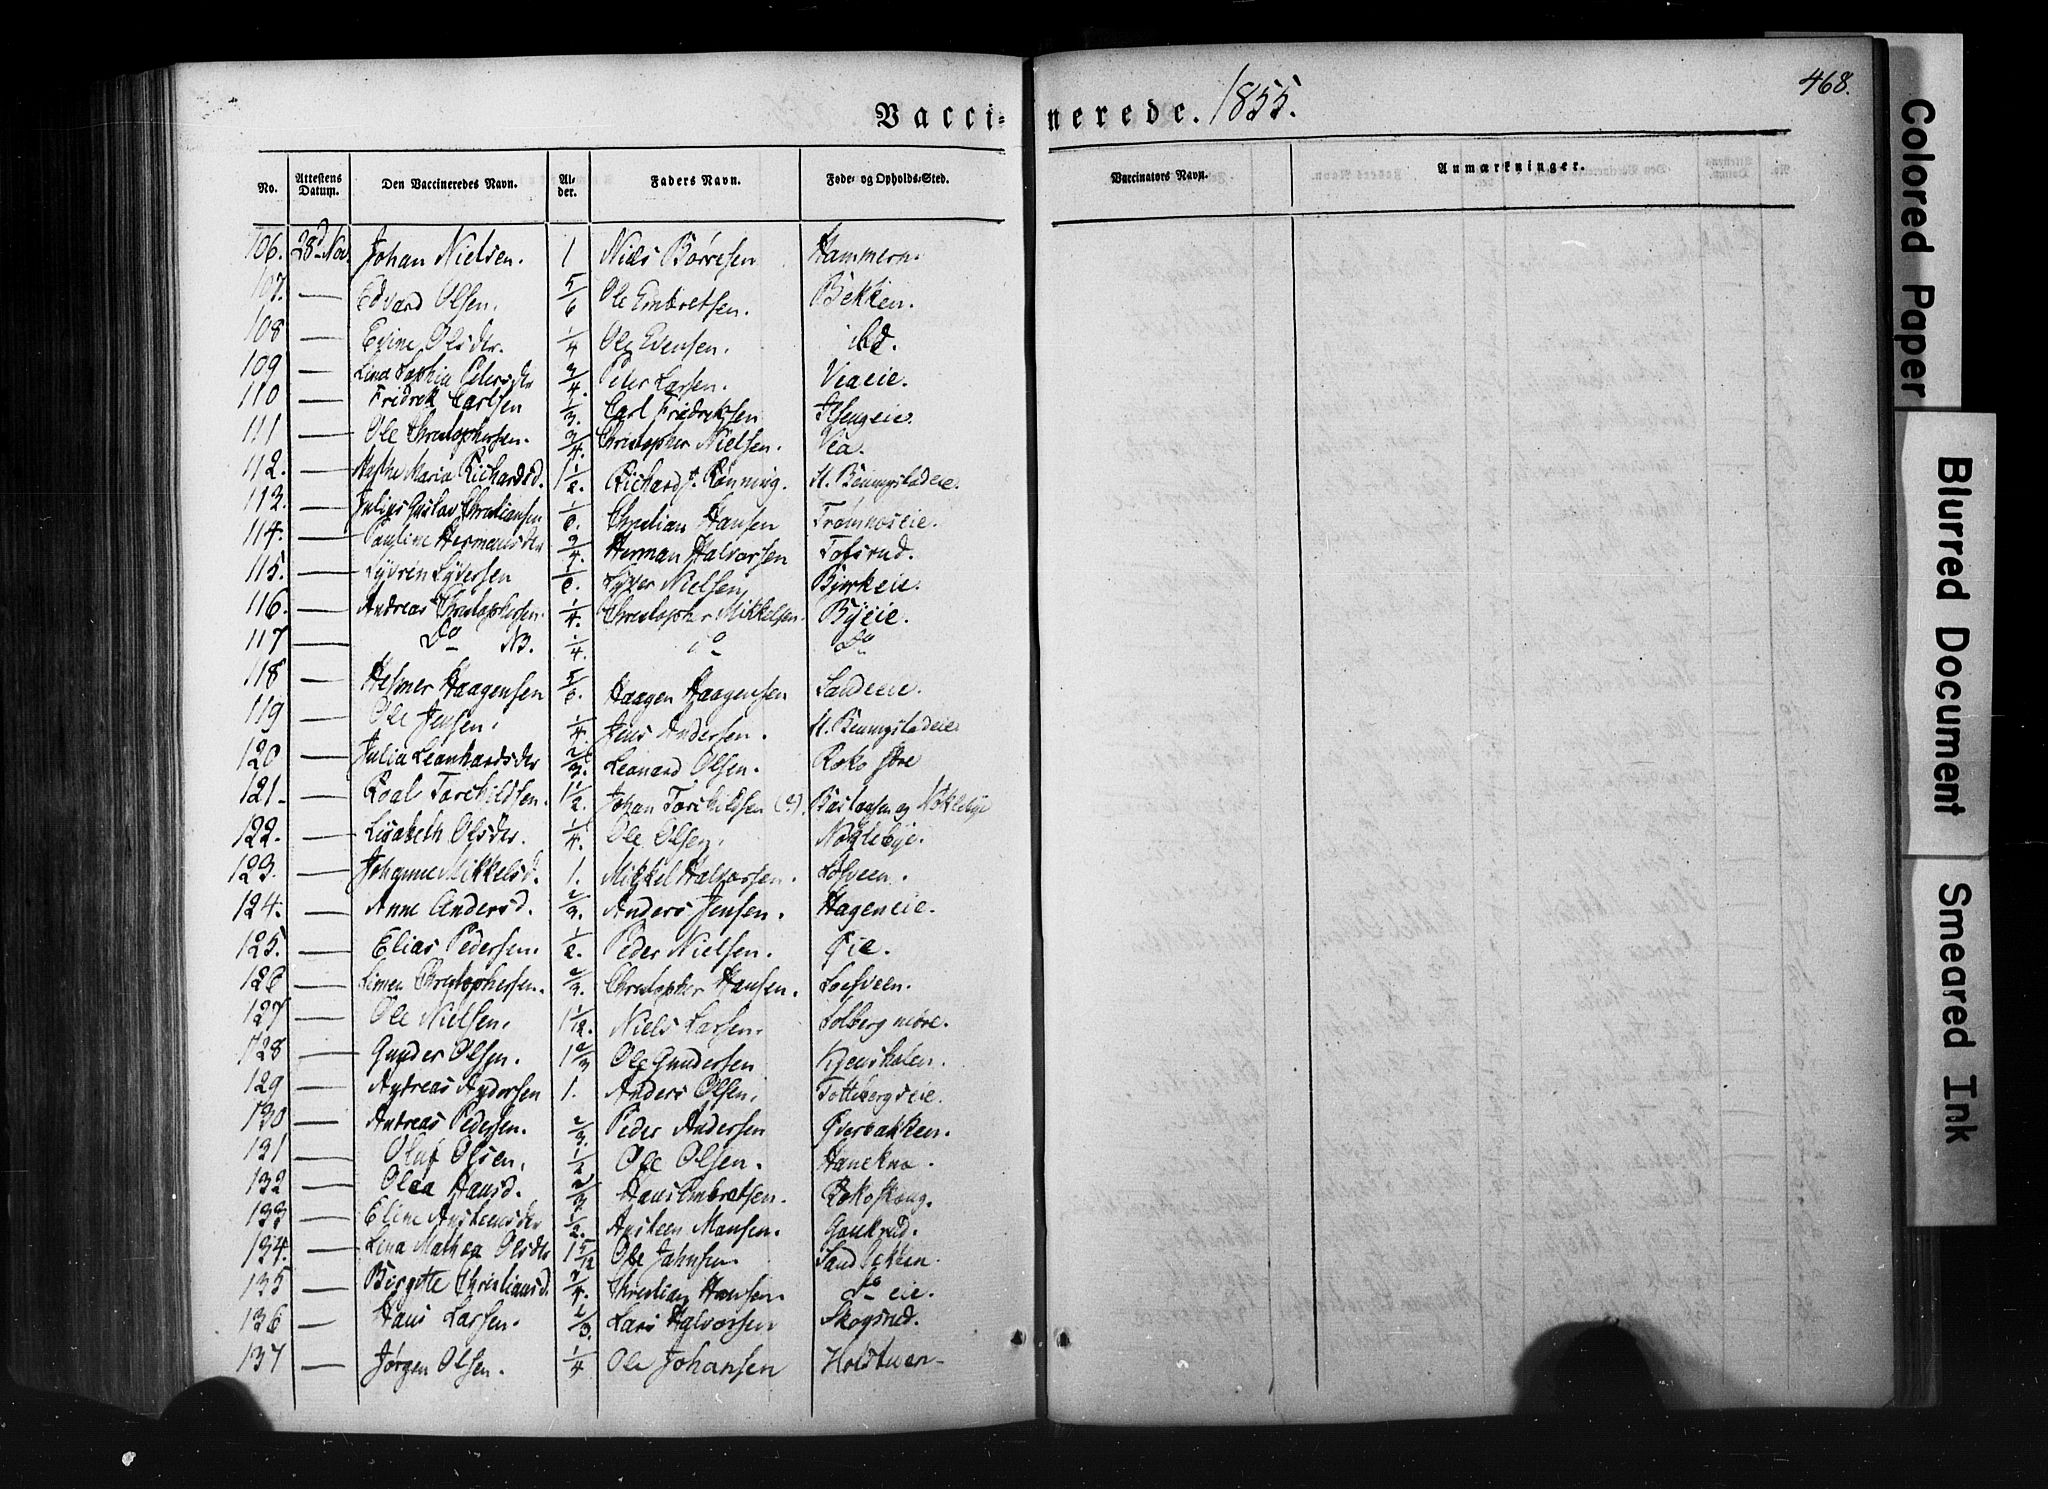 468.
Vacci= nerede. 1855.
No. Attestens Datum. Den Vaccineredes Navn. Al-der. Faders Navn. Føde- og Opholds-Sted. Vaccinators Navn. Anmærkninger.
106. 28d Nov. Johan Nielsen. 1 Niels Børresen Hammern.
107. — Edvard Olsen. 5/6 Ole Embretsen. Bekken.
108 — Evine Olsdr. 1/4 Ole Evensen. ibd.
109 — Lina Sophia Petersdr 3/4 Peter Larsen. Viaeie.
110 — Fridrik Carlsen 1/3. Carl Fridriksen
111 — Ole Christophersen. 3/4 Christopher Nielsen. Via.
112. — Maria Richardsd. 1 1/2. Richard Rønning. N. Bennystadeie.
113. — Julius Gustav Christiansen Christian Hansen
114. — Pauline Hermansdr 3/4. Herman Halvorsen Tofsrud.
115. — Syver Nielsen Byrkeie.
116. — Andreas Christophersen. 1/4. Christopher Mikkelsen. Byeie.
117 — Do NB. 1/4. do Do
118 — Helmer Haagensen 5/6. Haagen Haagensen Sandeeie.
119 — Ole Jensen. 1/4. Jens Andersen. N. Bennystadeie
120 — Julia Leonhardsdr 2/3. Leonard Olsen. Roko Øvre
121 — Roal Torchildsen. 1 1/2. Johan Torchildsen Nøklebye
122. — Lisabeth Olsdr. 1/4. Ole Olsen. Nøklebye.
123. — Johanne Mikkelsd. 1. Mikkel Halvorsen. Løfveen.
124. — Anne Andersd. 2/3. Anders Jensen. Hageneie.
125. — Elias Pedersen. 1/2. Peder Nielsen. Øie.
126 — Christophersen. 2/3. Christopher Hansen. Loefveen.
127 — Ole Nielsen. 1 1/12. Niels Larsen. Solberg
128 — Gunder Olsen. 1 2/3 Ole Gundersen
129 — Andreas Andersen 1. Anders Olsen. Tottebergseie.
130 — Andreas Pedersen. 2/3. Peder Andersen Øverbakken.
131 — Oluf Olsen. 1/2 Ole Olsen. Hanekne.
132 — Olea Hansd. 2/3 Hans Embretsen. Rokoskoug.
133 — Eline Anstensdr 1/2. Ansteen Monsen. Gaukrud.
134. — Lina Mathea Olsdr 1 5/12 Ole Jahnsen. Sandbekken.
135 — Birgitte Christiansd. 3/4. Christian Hansen. do eie.
136 — Hans Larsen. 2/3. Lars Halvorsen Skogsrud.
137 — Jørgen Olsen. 1/4 Ole Johansen Holstuen
Colored Paper
Blurred Document
Smeared Ink